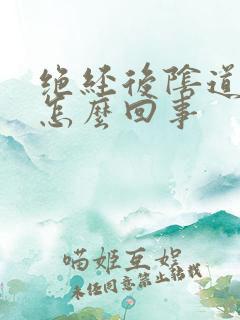 绝经後陰道
怎麽回事
喵姬互娱
未经同意禁止转载